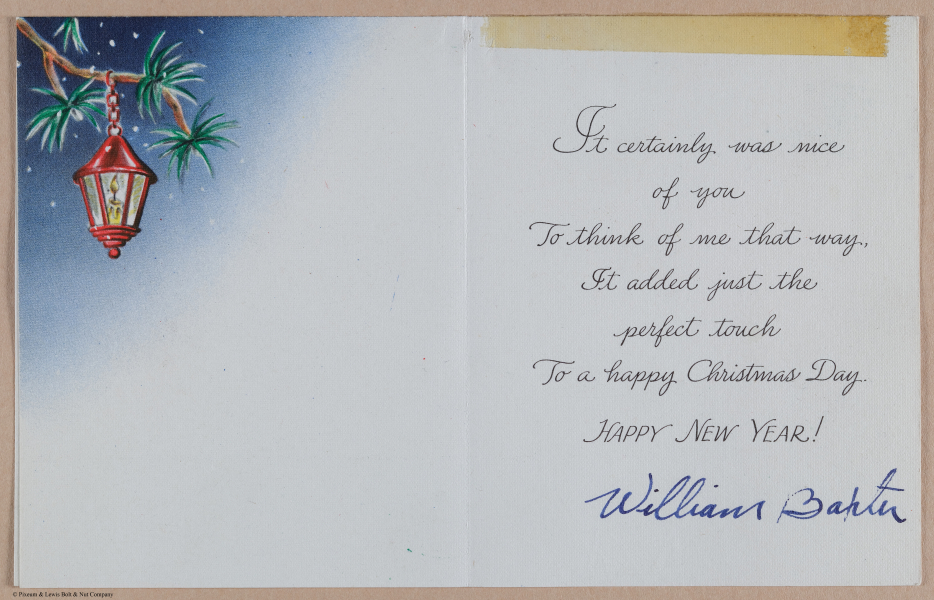 It certainly was nice
of you
To think of me that way,
It added just the
perfect touch
To a happy Christmas Day.
HAPPY NEW YEAR!
William Baxter
© Piseum & Lewis Bolt & Nut Company